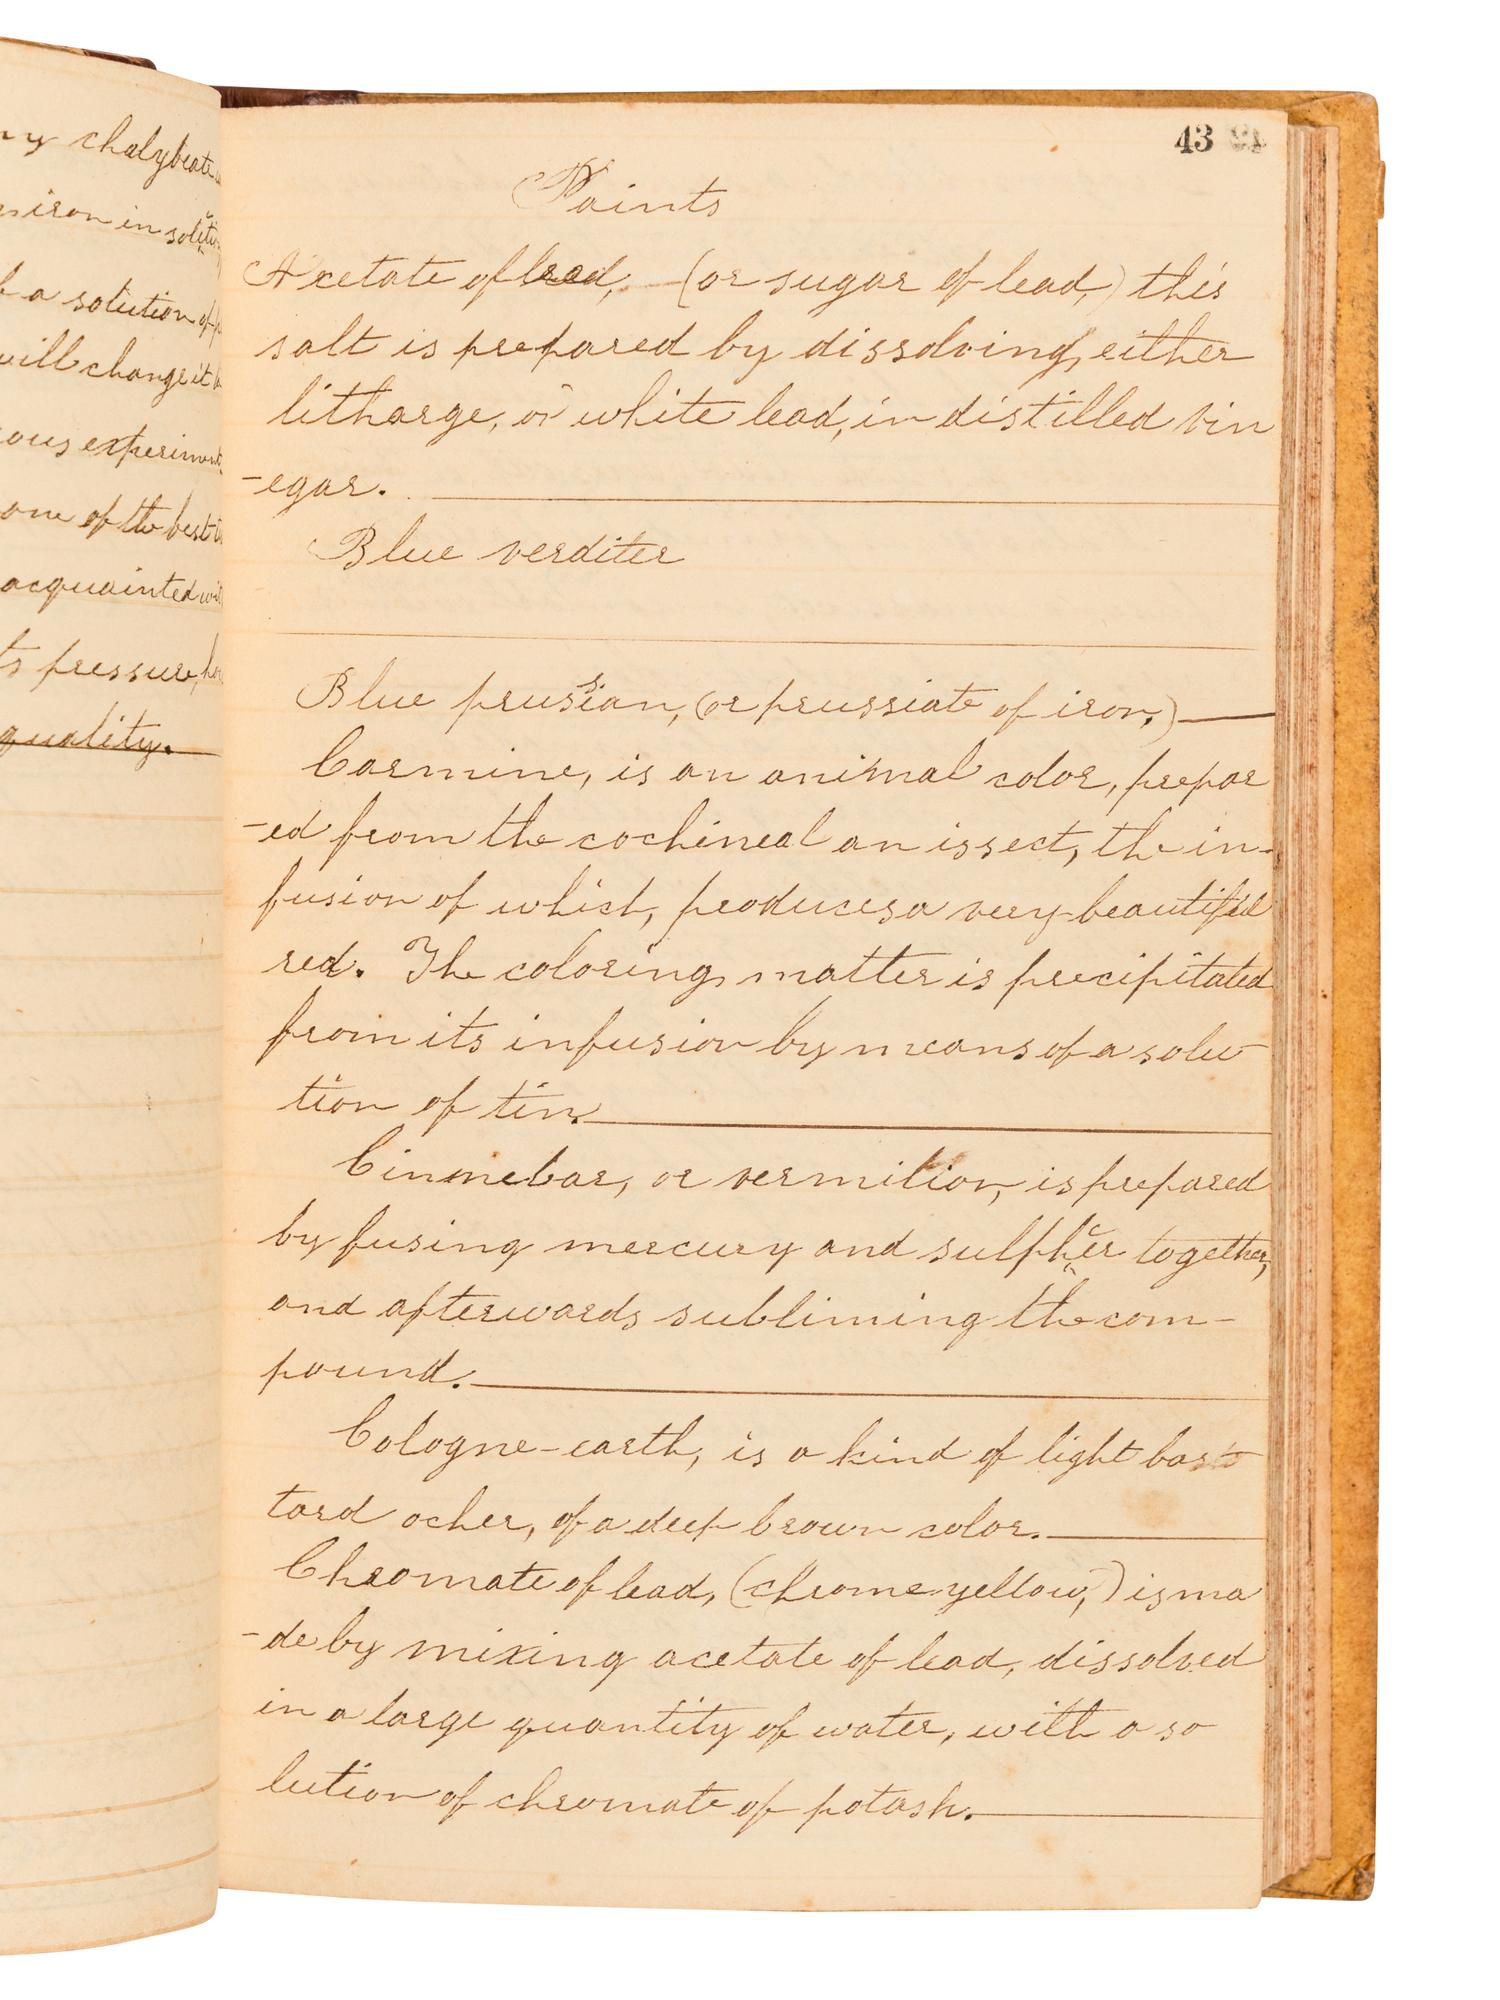 ny chalybeate
iron in solution
a solution of
will change it
ous experiment
one of the best
acquainted wit
ts pressure, ho
quality.
43
Paints
Acetate of lead, (or sugar of lead,) this
salt is prepared by dissolving, either
litharge, or white lead, in distilled vin
-egar.
Blue verditer
Blue prussian, (or prussiate of iron,)
Carmine, is an animal color, prepar
-ed from the cochineal an issect, the in-
fusion of which, produces a very beautiful
red. The coloring matter is precipitated
from its infusion by means of a solu
tion of tin.
Cinnebar, or vermilion, is prepared
by fusing mercury and sulpher together,
and afterwards subliming the com-
pound.
Cologne-earth, is a kind of light bas
tard ocher, of a deep brown color.
Chromate of lead, (chrome yellow,) is ma
-de by mixing acetate of lead, dissolved
in a large quantity of water, with a so
lution of chromate of potash.